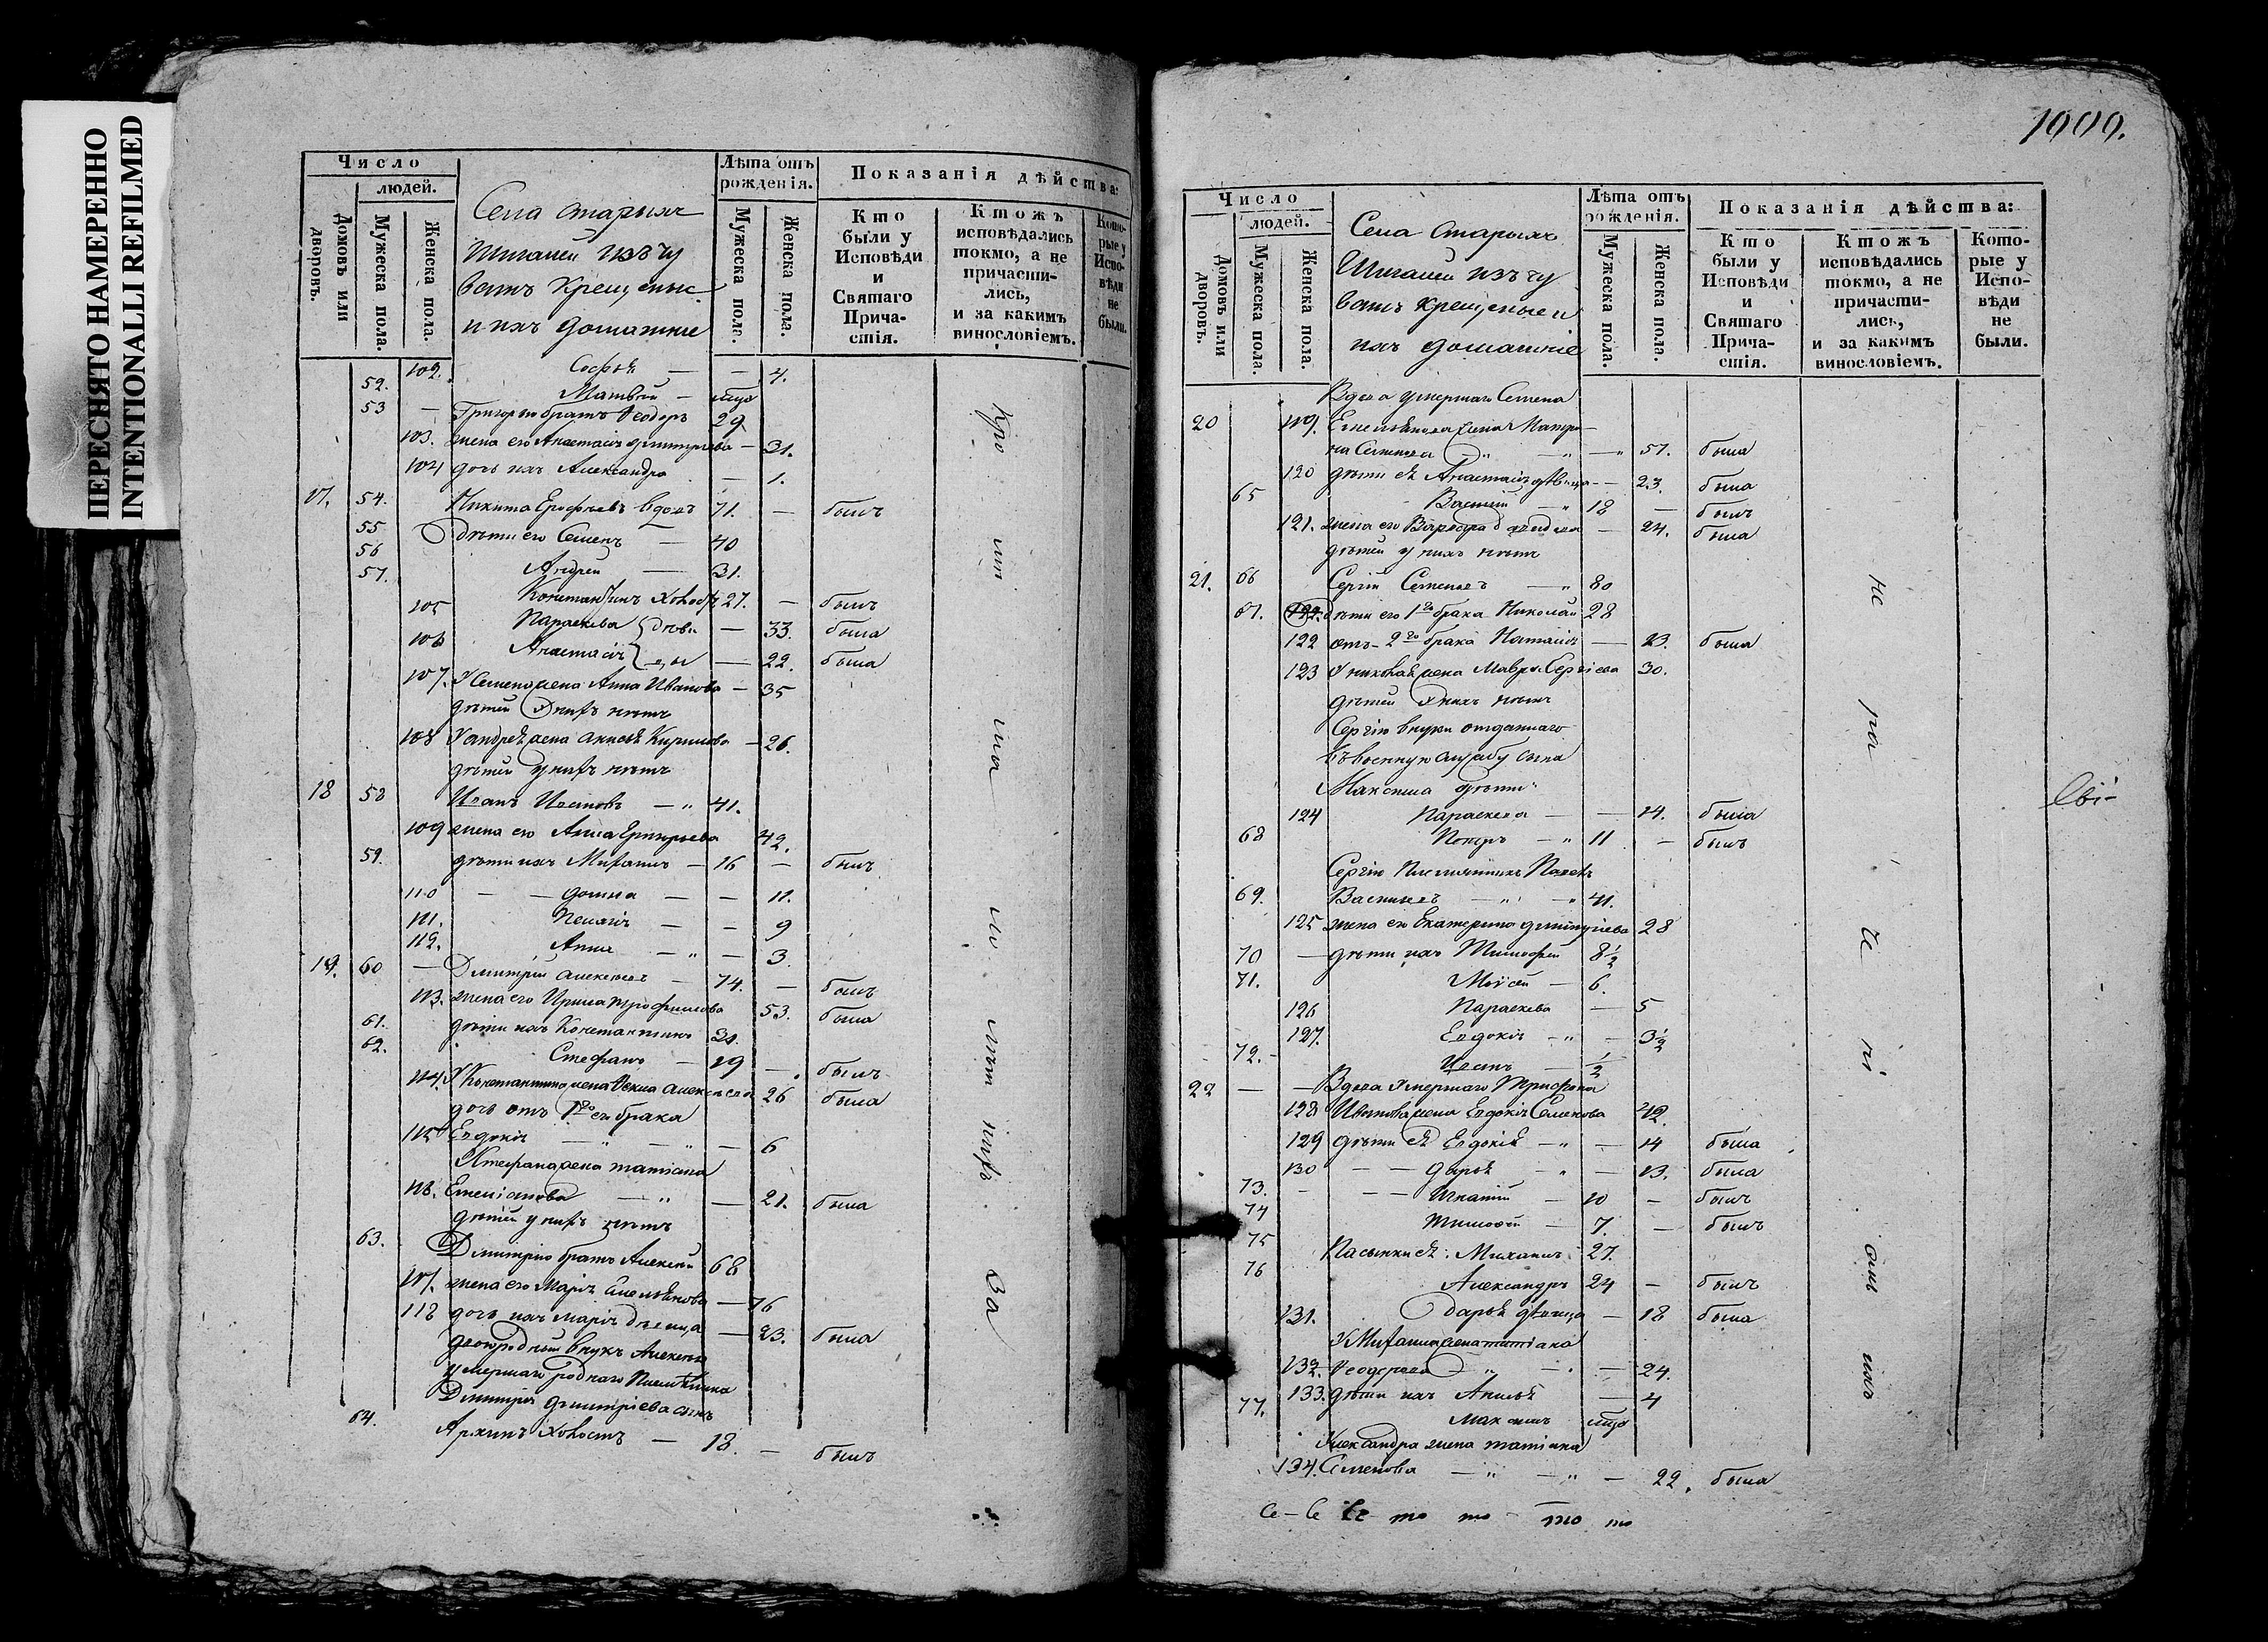 ПЕРЕСНЯТО НАМЕРЕННО
INTENTIONALLI REFILMED
Число
людей.
Домовъ или дворовъ.
Мужеска пола.
Женска пола.
Села Старыхъ
Шигалей изъ чу
вашъ крещеные
и ихъ домашние
Лѣта отъ рожденія.
Мужеска пола.
Женска пола.
Показанія дѣйства:
Кто были у Исповѣди и Святаго Прича-стія.
Ктожъ исповѣдались токмо, а не причасти-лись, и за какимъ винословіемъ.
Кото-рые у Испо-вѣди не были.
102. Софья — — 4.
52. Матвѣй —
53 — Григорья братъ Ѳеодоръ 29
103. жена его Анастасія Дмитриева — 31.
104 дочь ихъ Александра — 1.
17. 54. Никита Ерофѣевъ вдовъ 71. — былъ
55 Дѣти его Семенъ — 40
56 Андрей — 31.
57. Константинъ холостъ 27. — былъ
105 Параскева — 33. была
106 Анастасія — 22. была
107. У Семена жена Анна Иванова — 35
дѣтей у нихъ нѣтъ
108 У Андрея жена Кирилова — 26.
дѣтей у нихъ нѣтъ
18 58 Иванъ Ивановъ — „ 41.
109 жена его Анна Григорьева 42.
59. дѣти ихъ Михаилъ — 16 — былъ
110 — — Домна — — 11.
111. Пелагія — — 9
112. Анна — „ — 3.
19. 60 — Дмитрій Алексѣевъ — 74. — былъ
113. жена его Ирина Трофимова 53. была
61. дѣти ихъ Константинъ 31.
62. Стефанъ — 19 — былъ
114. У Константина жена Алексѣева 26 была
дочь отъ 1го ея брака
115 Евдокія — „ — „ — 6
У Стефана жена Татіана
116. Емеліанова — „ — 21. была
дѣтей у нихъ нѣтъ
63. Дмитрію братъ Алексѣй 68
117. жена его Марія Емельянова — 76
118 дочь ихъ Марія дѣвица — 23. была
двоюродный внукъ Алексѣю
умершаго роднаго племянника
Дмитрія Дмитріева сынъ
64. Архипъ холостъ — 18. — былъ
1009.
Число
людей.
Домовъ или дворовъ.
Мужеска пола.
Женска пола.
Села Старыхъ
Шигалей изъ чу
вашъ крещеные и
ихъ домашніе
Лѣта отъ рожденія.
Мужеска пола.
Женска пола.
Показанія дѣйства:
Кто были у Исповѣди и Святаго Прича-стія.
Ктожъ исповѣдались токмо, а не причасти-лись, и за какимъ винословіемъ.
Кото-рые у Испо-вѣди не были.
Вдова умершаго Семена
20 119. Емельянова жена Матре-
на Семенова — „ — „ 57. была
120 дѣти ея Анастасія дѣвица — 23. была
65 Василій — „ 18 — былъ
121. жена его Варвара — 24. была
дѣтей у нихъ нѣтъ
21. 66 Сергій Семеновъ — „ 80
67. дѣти его 1го брака Николай 28
122 отъ 2го брака Наталія — 23. была
123 У Николая жена Мавра Сергіева 30.
дѣтей у нихъ нѣтъ
Сергію внуки отданнаго
въ военную службу сына
Максима дѣти
124 Параскева — — 14. была
68 Петръ — „ 11 — былъ
Сергію племянникъ Павелъ
69. Васильевъ — „ „ 41.
125 жена его Екатерина Дмитріева 28
70 — дѣти ихъ Тимофей 8½
71. Моисей — 6.
126 Параскева — 5
127. Евдокія — „ — 3½
72. — Иванъ — ½
22 — — Вдова умершаго Трифона
128 Иванова жена Евдокія Семенова 42.
129 дѣти ея Евдокія — „ — 14 была
130 — — Дарья — „ — 13. была
73. — — — Игнатій — 10 — былъ
74 Тимофей — 7. — былъ
75 Пасынки ея: Михаилъ 27.
76 Александръ 24 — былъ
131. Дарья дѣвица — 18 была
У Михаила жена Татіана
132. Ѳеодорова — „ — „ — 24.
133. дѣти ихъ Анисья — 4
77. Максимъ
Александра жена Татіана
134. Семенова — „ — „ — 22. была